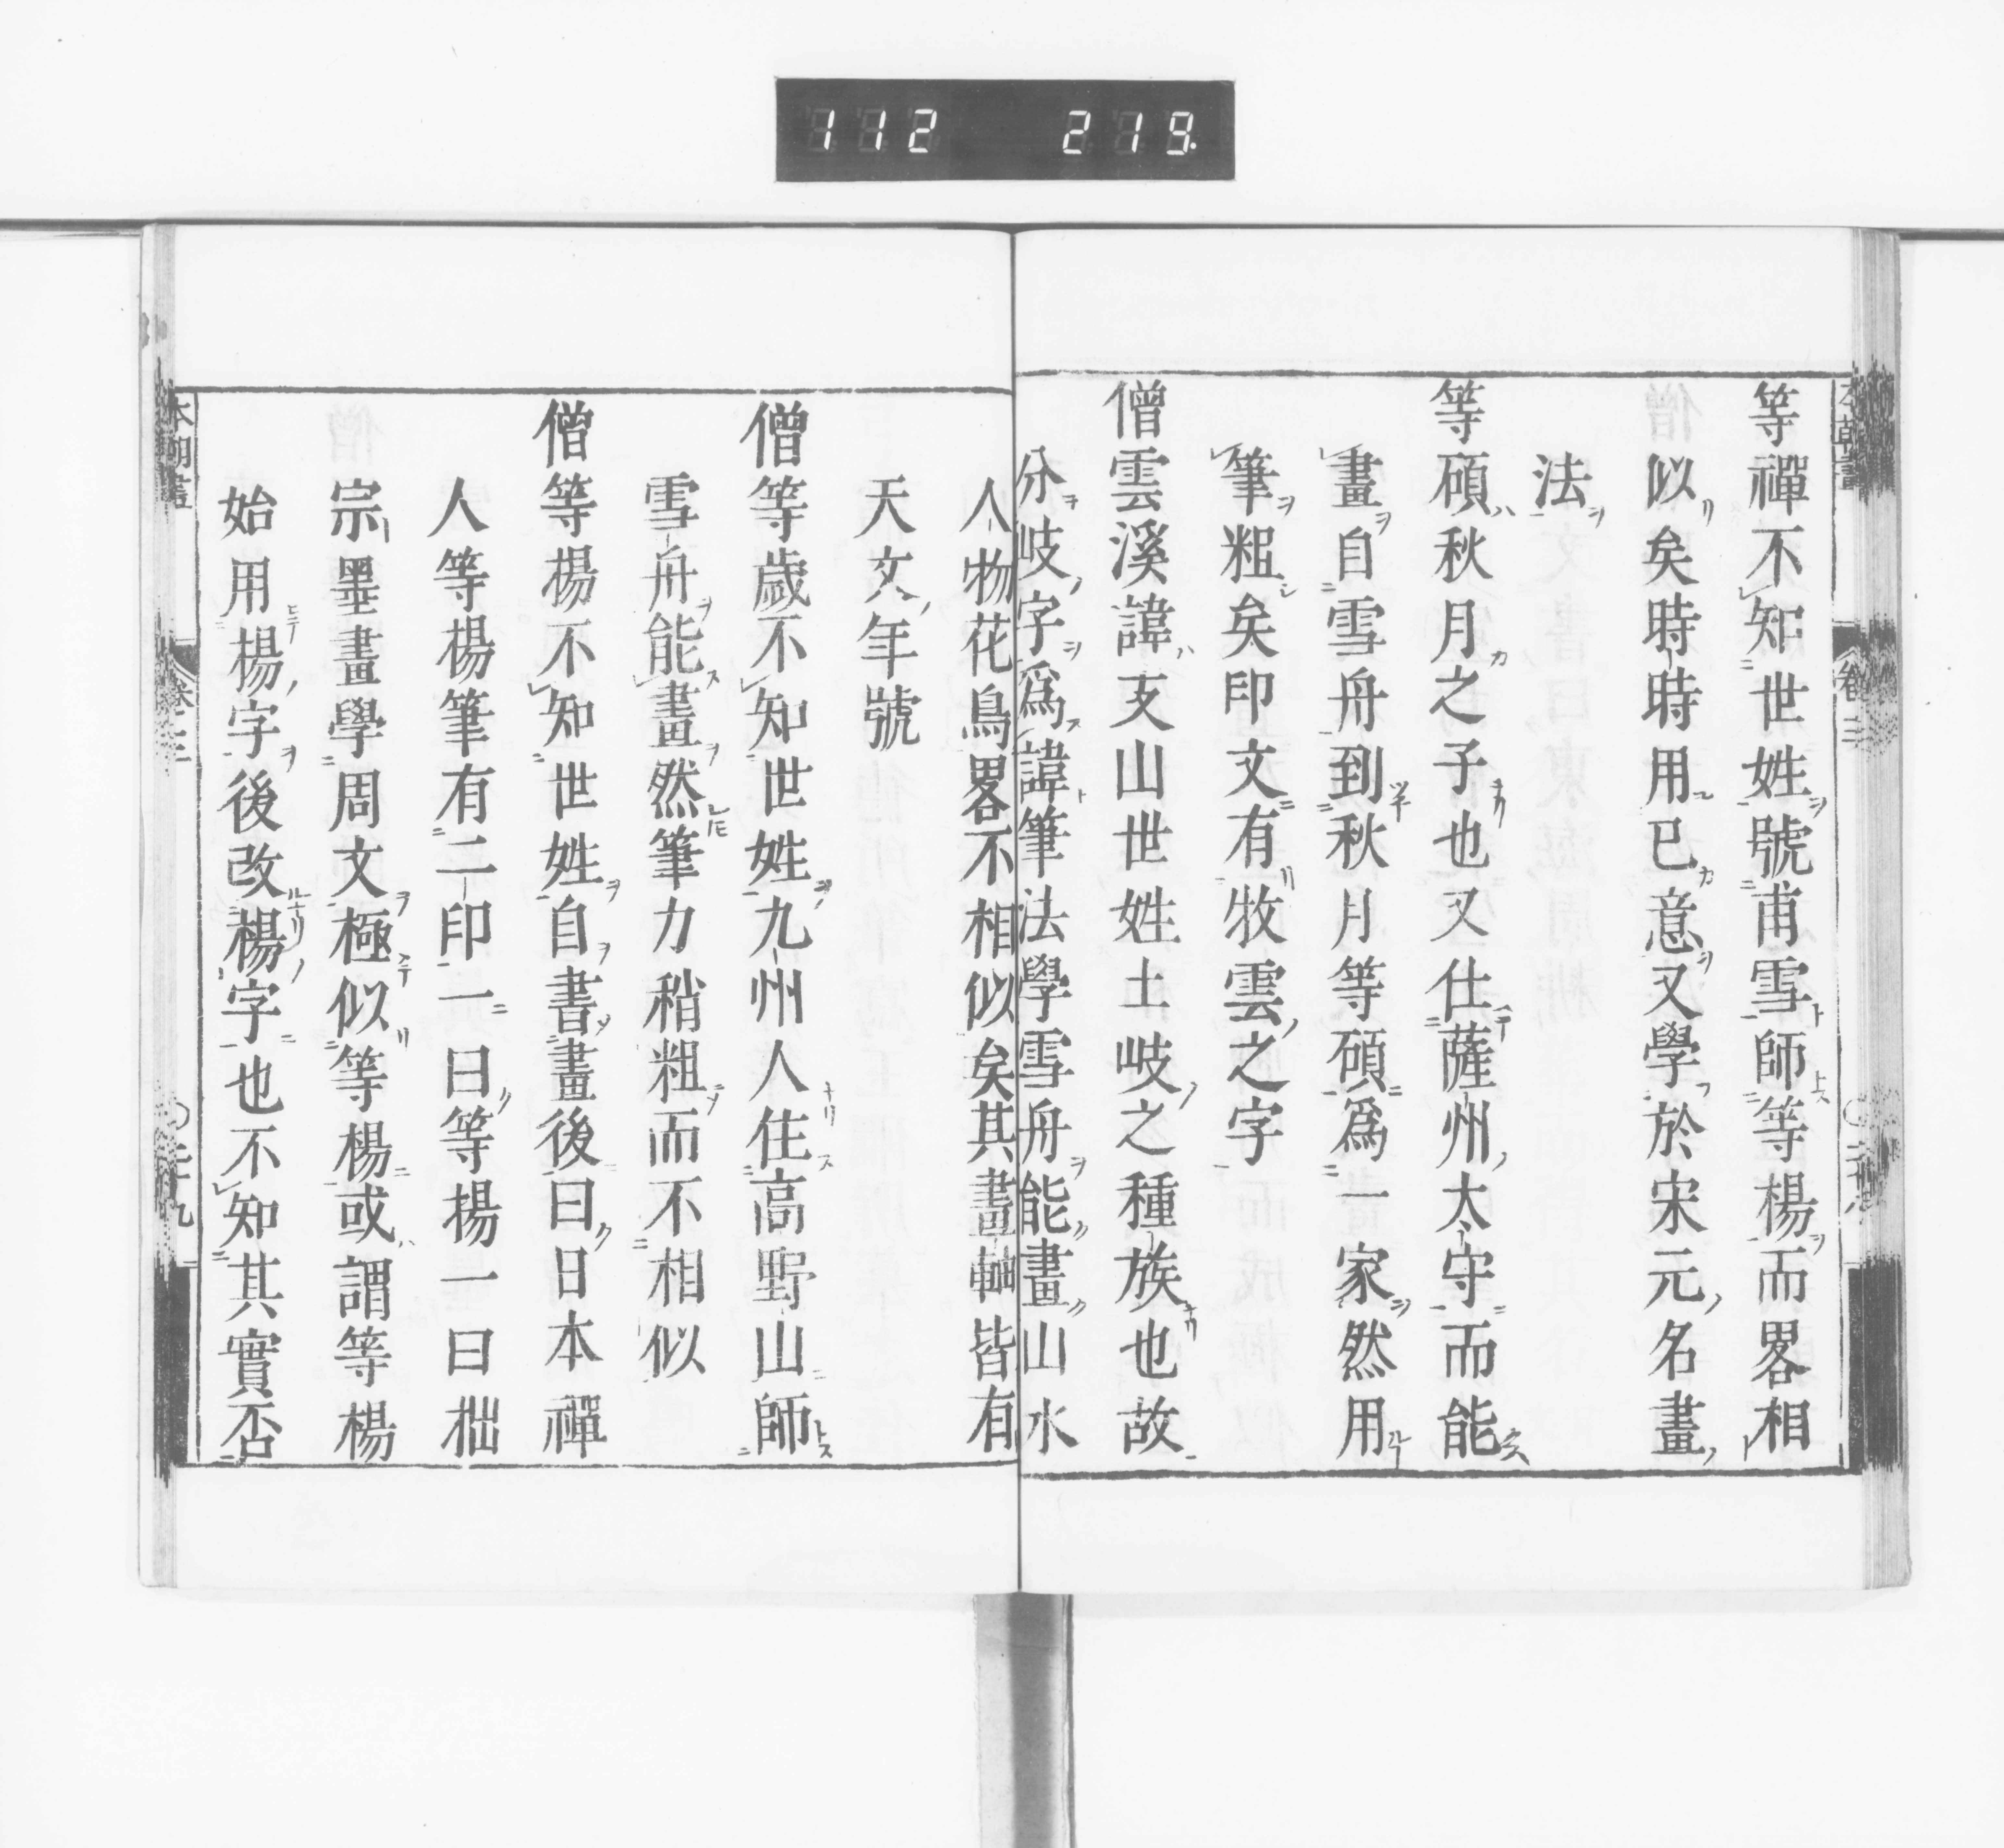 112 219
等禪不知世姓號甫雪師等楊而畧相
似矣時時用已意又學於宋元名畫
法
等碩秋月之子也又仕薩州太守而能
畫自雪舟到秋月等碩爲一家然用
筆粗矣印文有牧雲之字
僧雲溪諱支山世姓土岐之種族也故
分岐字爲諱筆法學雪舟能畫山水
人物花鳥畧不相似矣其畫軸皆有
天文年號
僧等歲不知世姓九州人住高野山師
雪舟能畫然筆力稍粗而不相似
僧等楊不知世姓自書畫後曰日本禪
人等楊筆有二印一曰等揚一曰拙
宗墨畫學周文極似等楊或謂等楊
始用楊字後改楊字也不知其實否
本朝畫
卷三